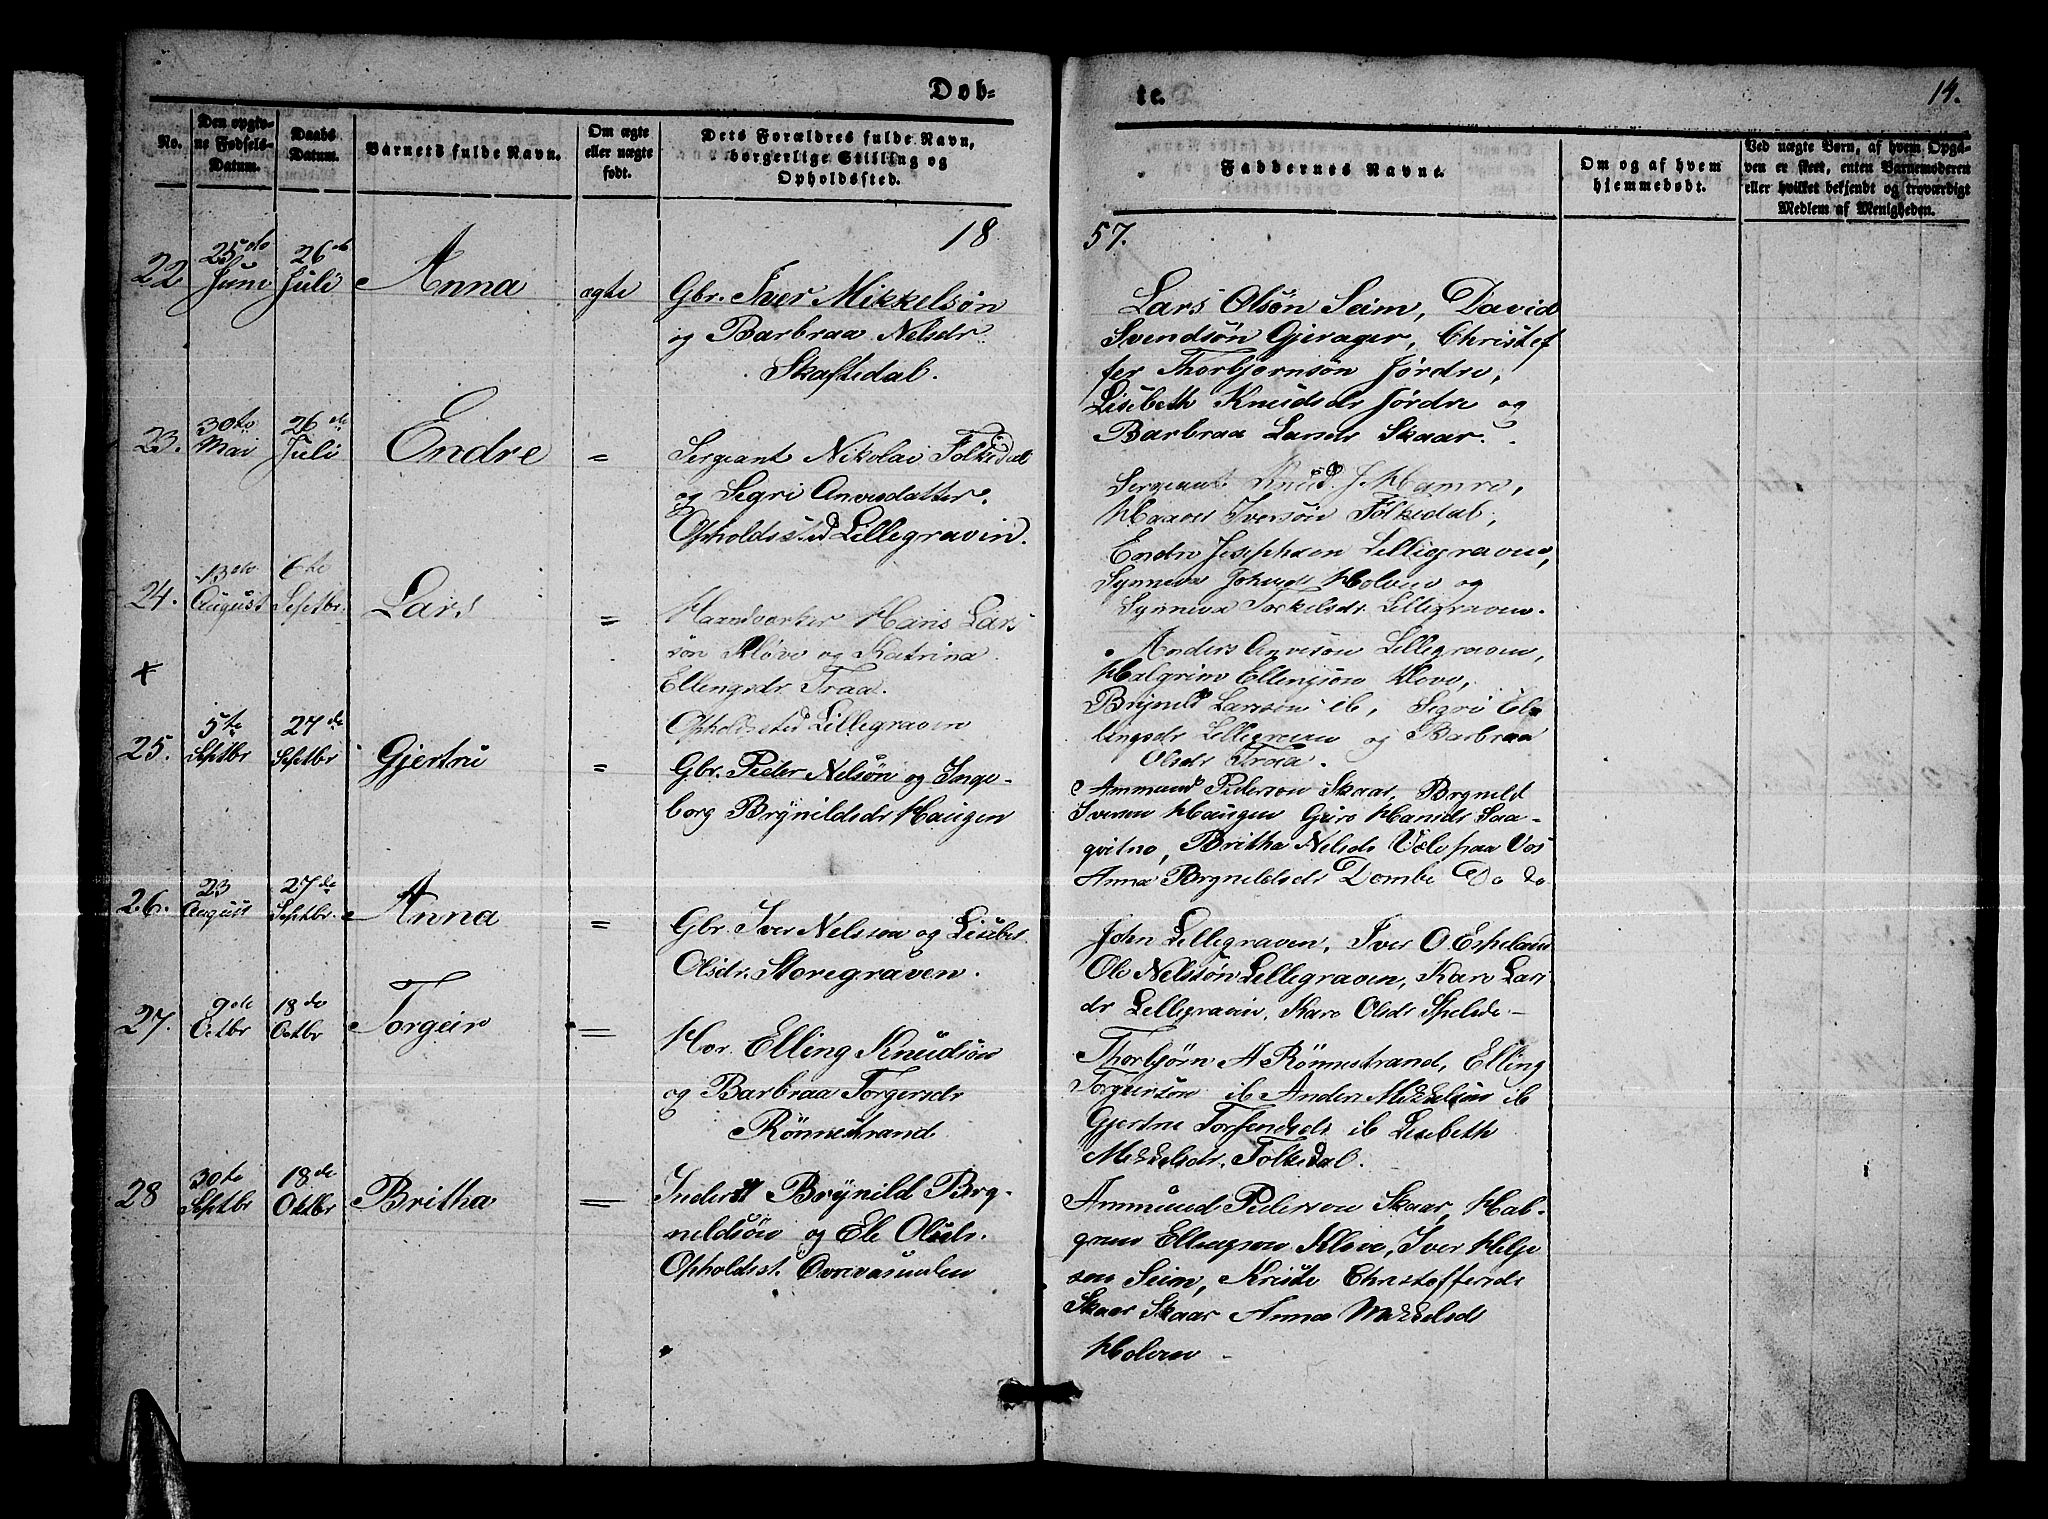 Døb-
te.
14.
No.
Den opgiv-
ne Fødsels-
Datum.
Daabs
Datum.
Barnets fulde Navn.
Om ægte
eller uægte
født.
Dets Forældres fulde Navn,
borgerlige Stilling og
Opholdssted.
Faddernes Navne.
Om og af hvem
hjemmedøbt.
Ved uægte Børn, af hvem Opgi-
ven er skeet, enten Barnemoderen
eller hvilket bekjendt og troværdigt
Medlem af Menigheden.
18
57.
22
25de
Juni
26de
Juli
Anna
ægte
Gbr. Iver Mikkelsøn
og Barbraa Nelsdr
Skaftedal.
Lars Olsøn Seim, David
Svendsøn Gjerager, Christof
fer Thorbjørnsøn Jørdre,
Lisebeth Knudsdr Jørdre og
Barbraa Larsdr Skaar.
23.
30te
Mai
26de
Juli
Endre
=
Sergeant Nikolai Folkedal
og Segri Anvesdatter.
Opholdssted Lillegraven.
Sergeant Knud J Hamre,
Haavar Iversøn Folkedal,
Endre Josephsen Lillegraven,
Synneva Johnsdr Holven og
Synneva Torkelsdr Lillegraven.
24.
13de
August
6te
Septbr.
Lars
=
Haandværker Hans Lars
søn Kløve og Katrina
Ellingsdr Traa.
Opholdssted Lillegraven
x
Anders Anvesøn Lillegraven,
Halgrim Ellingsøn Kløve,
Brynild Larssøn ib, Segri El-
lingsdr Lillegraven og Barbraa
Olsdr Traa.
25.
5te
Septbr
27de
Septbr
Gjertru
=
Gbr. Peder Nelsøn og Inge-
borg Brynildsdr Haugen
Ammund Pederson Skaar, Brynild
Iversen Haugen Guro Hansdr Saa-
qvitno, Britha Nelsdr Væle paa Vos
Anna Brynildsdr Dombe Do do
26.
23
August
27de
Septbr.
Anna
=
Gbr. Iver Nelsson og Lisebet
Olsdr. Storegraven.
John Lillegraven, Iver O. Espeland
Ole Nelsøn Lillegraven, Kari Lars
dr Lillegraven, Kari Olsdr Spelde -
27.
9de
Octbr
18de
Octbr
Torgeir
=
Hor. Elling Knudsøn
og Barbraa Torgersdr
Rønnestrand
Thorbjørn A Rønnestrand, Elling
Torgersøn ib Anders Mikkelsøn ib
Gjertru Torfendsdr ib Lisebeth
Mikkelsdr. Folkedal.
28
30te
Septbr
18de
Oktbr
Britha
=
Inderst Brynild Bry-
nildsøn og Eli Olsdr.
Opholdsst. Øvrevasenden
Ammund Pederson Skaar, Hal-
grim Ellingson Kløve, Iver Helje
son Seim, Kristi Christoffersdr
Skaar Skaar Anna Mikkelsdr
Holven -